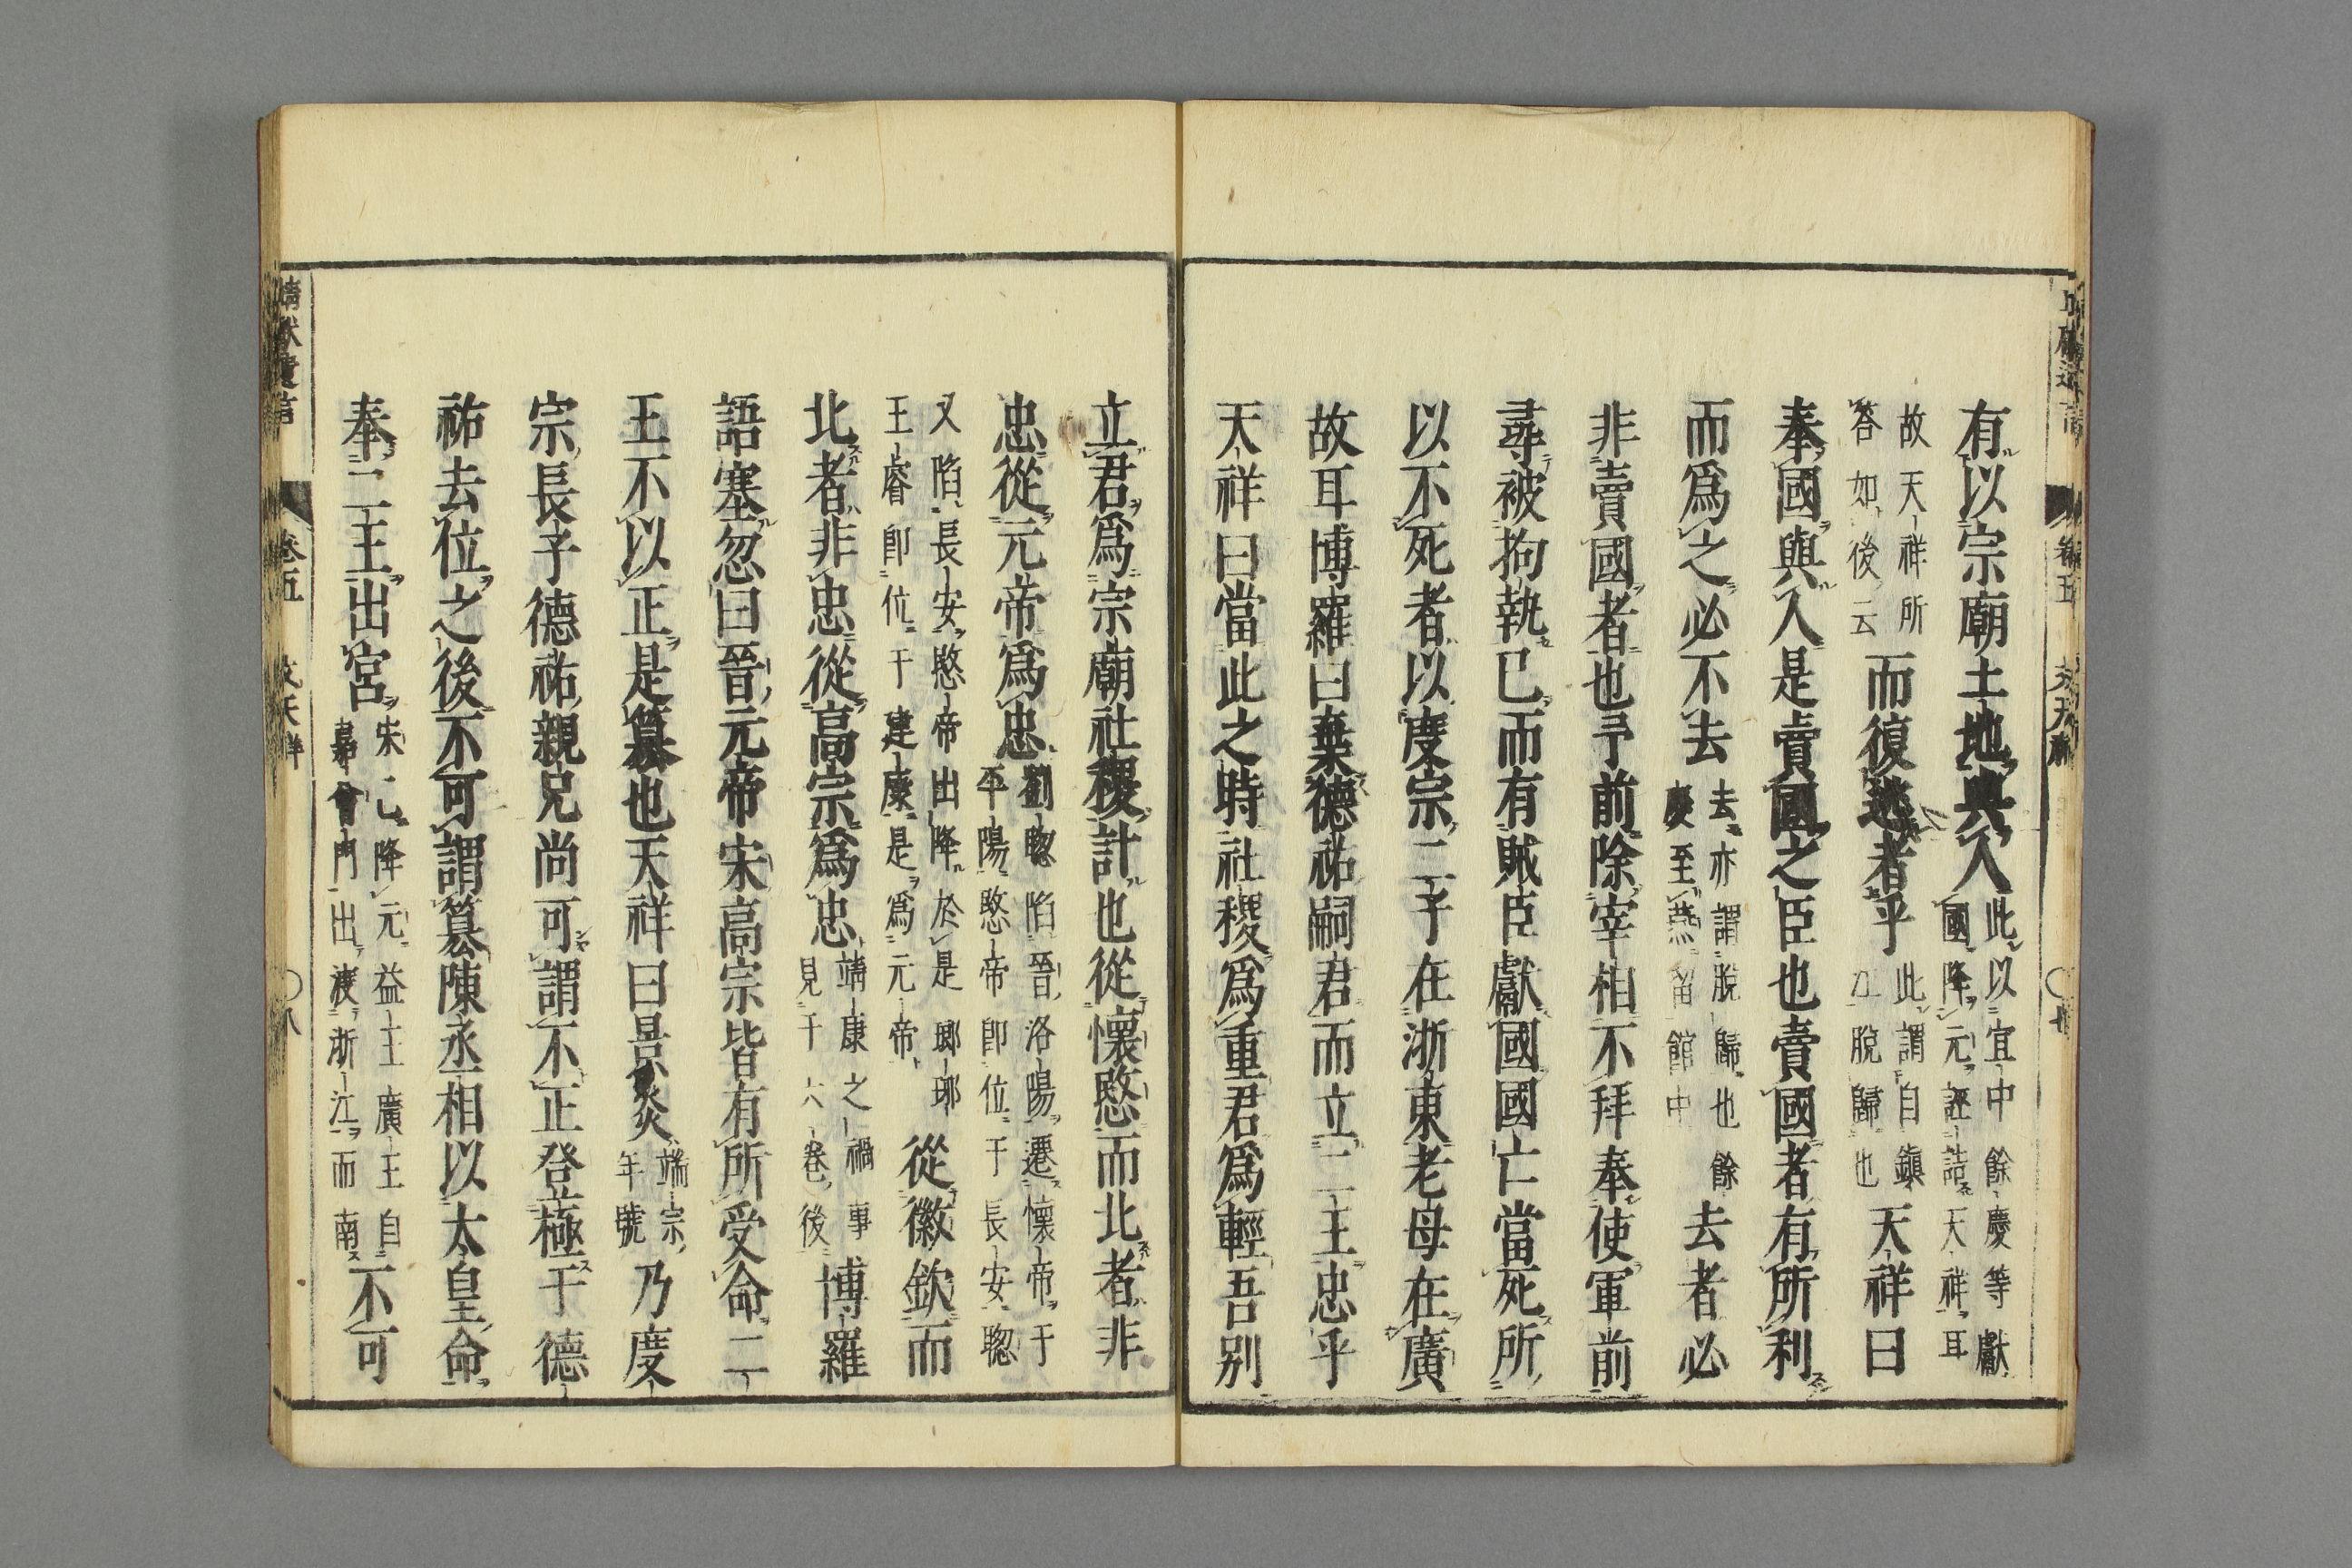 有以宗廟土地與人此以宜中餘慶等獻國降元誣詰天祥耳
故天祥所答如後云而復逃者乎此謂自鎮江脫歸也天祥曰
奉國與人是賣國之臣也賣國者有所利
而爲之必不去去亦謂脫歸也餘慶至燕留館中去者必
非賣國者也予前除宰相不拜奉使軍前
尋被拘執已而有賊臣獻國國亡當死所
以不死者以度宗二子在浙東老母在廣
故耳博羅曰棄德祐嗣君而立二王忠乎
天祥曰當此之時社稷爲重君爲輕吾别
立君爲宗廟社稷計也從懷愍而北者非
忠從元帝爲忠劉聰陷晉洛陽遷懷帝于平陽愍帝卽位于長安聰
又陷長安愍帝出降於是瑯琊王睿卽位于建康是爲元帝從徽欽而
北者非忠從高宗爲忠靖康之禍事見于六卷後博羅
語塞忽曰晉元帝宋高宗皆有所受命二
王不以正是篡也天祥曰景炎端宗年號乃度
宗長子德祐親兄尚可謂不正登極于德
祐去位之後不可謂篡陳丞相以太皇命
奉二王出宮宋已降元益王廣王自嘉會門出渡浙江而南不可
靖獻遺言
卷五
文天祥
八